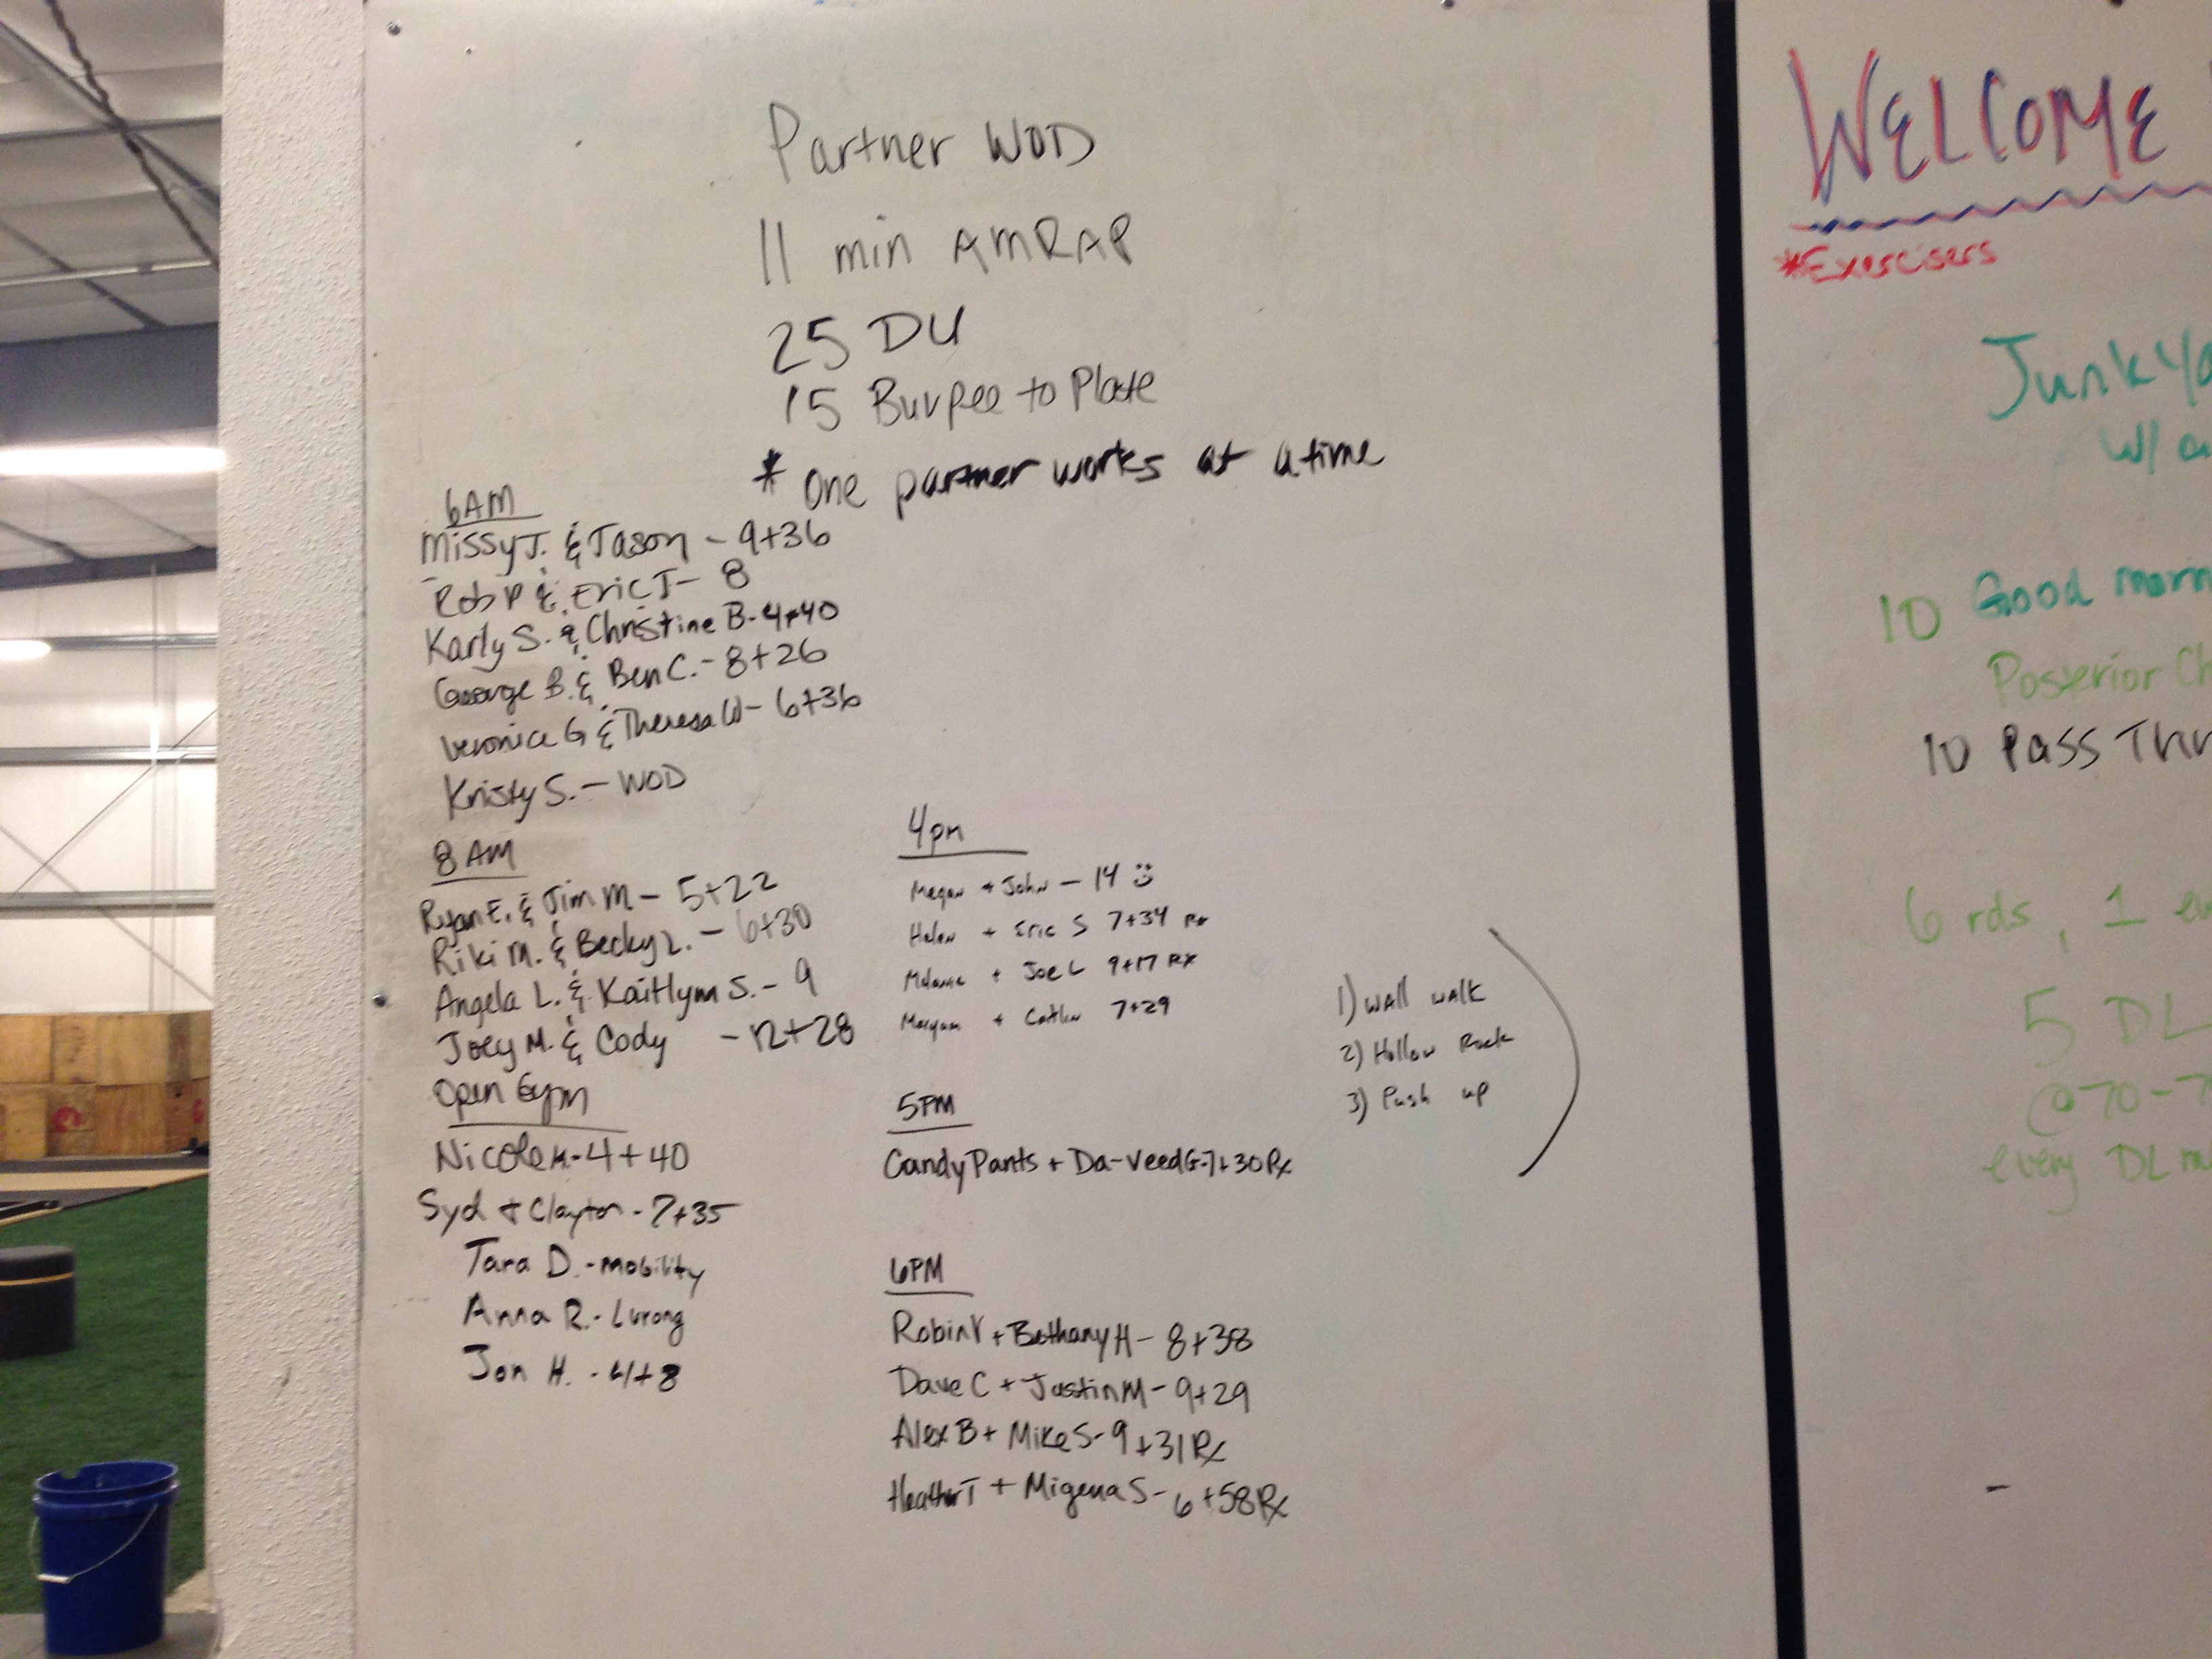 Partner WOD
11 min AMRAP
25 DU
15 Burpee to Plate
* One partner works at a time
6AM
Missy J. & Jason - 9+36
Rob P & Eric J - 8
Karly S. & Christine B - 4+40
George B. & Ben C. - 8+26
Veronica G & Theresa W - 6+36
Kristy S. - WOD
8 AM
Ryan E. & Jim M - 5+22
Riki M. & Becky L. - 6+30
Angela L. & Kaitlynn S. - 9
Joey M. & Cody - 12+28
Open Gym
Nicole - 4+40
Syd + Clayton - 7+35
Tara D. - Mobility
Anna R. - Lurong
Jon H. - 4+8
4pm
Megan + John - 14
Helen + Eric S 7+34 Rx
Melanie + Joe L 9+17 Rx
+ Caitlin 7+29
1) Wall walk
2) Hollow Rock
3) Push up
5PM
CandyPants + Da-Veed G - 7+30 Rx
6PM
Robin Y + Bethany H - 8+38
Dave C + Justin M - 9+29
Alex B + Mike S - 9+31 Rx
Heather T + Migena S - 6+58 Rx
WELCOME
*Exercisers
JunkYa
w/ a
10 Good morn
Posterior Ch
10 Pass Thr
6 rds, 1 ev
5 DL
@70-7
every DL m